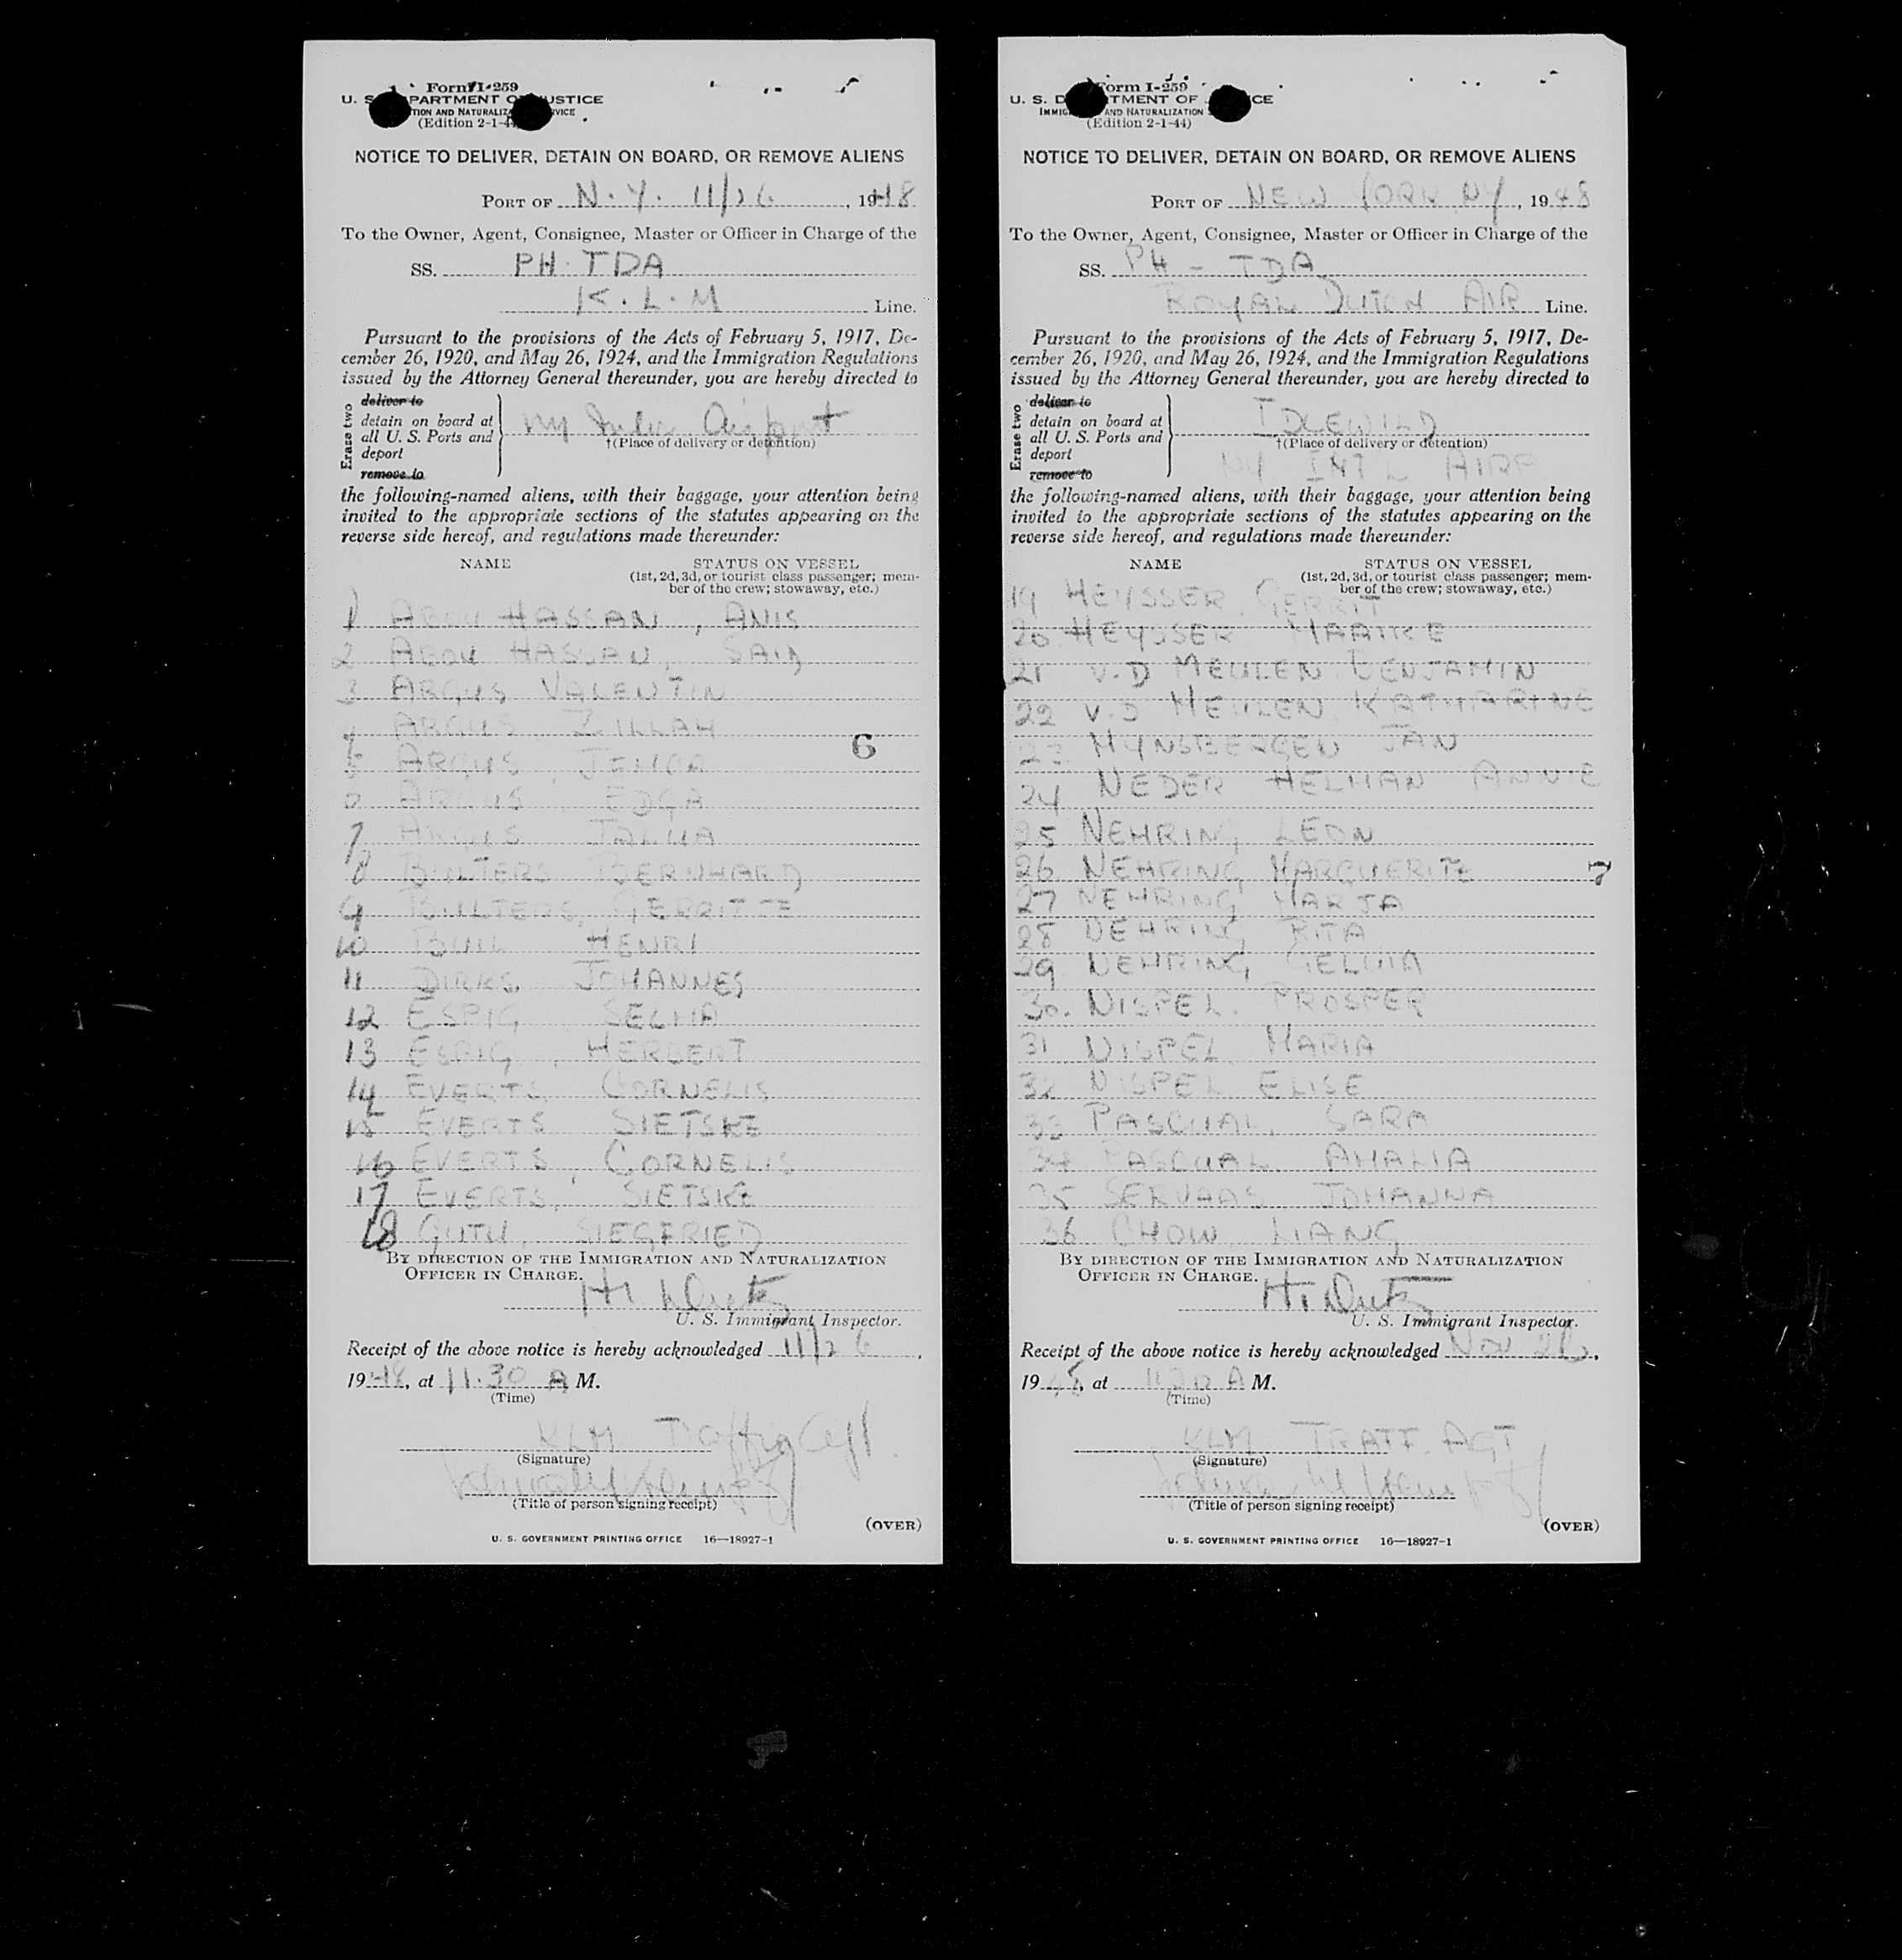 Form I-259
U. S. DEPARTMENT OF JUSTICE
IMMIGRATION AND NATURALIZATION SERVICE
(Edition 2-1-44)
NOTICE TO DELIVER, DETAIN ON BOARD, OR REMOVE ALIENS
PORT OF N.Y. 11/26, 1948
To the Owner, Agent, Consignee, Master or Officer in Charge of the
SS. PH-TDA
K.L.M Line.
Pursuant to the provisions of the Acts of February 5, 1917, De-
cember 26, 1920, and May 26, 1924, and the Immigration Regulations
issued by the Attorney General thereunder, you are hereby directed to
Erase two
deliver to
detain on board at
all U. S. Ports and
deport
remove to
NY Airport
†(Place of delivery or detention)
the following-named aliens, with their baggage, your attention being
invited to the appropriate sections of the statutes appearing on the
reverse side hereof, and regulations made thereunder:
NAME STATUS ON VESSEL
(1st, 2d, 3d, or tourist class passenger; mem-
ber of the crew; stowaway, etc.)
1 ABOU HASSAN, ANIS
2 ABOU HASSAN, SAID
3 ARGUS VALENTIN
4 ARGUS ZILLAH
5 ARGUS,
6
ARGUS EDGA
7 ARGUS
8 BULTERS BERNHARD
9 BULTERS, GERRITJE
10 HENRI
11 DIRKS, JOHANNES
12 ESPIG, SELMA
13 ESPIG, HERBERT
14 EVERTS, CORNELIS
15 EVERTS SIETSKE
16 EVERTS, CORNELIS
17 EVERTS, SIETSKE
18 GUTH, SIEGFRIED
BY DIRECTION OF THE IMMIGRATION AND NATURALIZATION
OFFICER IN CHARGE.
U. S. Immigrant Inspector.
Receipt of the above notice is hereby acknowledged 11/26,
1948, at 11.30 A M.
(Time)
KLM Traffic Agt.
(Signature)
(Title of person signing receipt)
(OVER)
U. S. GOVERNMENT PRINTING OFFICE 16—18927-1
Form I-259
U. S. DEPARTMENT OF JUSTICE
IMMIGRATION AND NATURALIZATION SERVICE
(Edition 2-1-44)
NOTICE TO DELIVER, DETAIN ON BOARD, OR REMOVE ALIENS
PORT OF NEW YORK NY, 1948
To the Owner, Agent, Consignee, Master or Officer in Charge of the
SS. PH-TDA
ROYAL DUTCH AIR Line.
Pursuant to the provisions of the Acts of February 5, 1917, De-
cember 26, 1920, and May 26, 1924, and the Immigration Regulations
issued by the Attorney General thereunder, you are hereby directed to
Erase two
deliver to
detain on board at
all U. S. Ports and
deport
remove to
IDLEWILD
†(Place of delivery or detention)
NY INT'L AIRP
the following-named aliens, with their baggage, your attention being
invited to the appropriate sections of the statutes appearing on the
reverse side hereof, and regulations made thereunder:
NAME STATUS ON VESSEL
(1st, 2d, 3d, or tourist class passenger; mem-
ber of the crew; stowaway, etc.)
19 HEYSSER, GERRIT
20 HEYSSER MAAIKE
21 V.D MEULEN BENJAMIN
22 V.D MEULEN KATHARINE
23 MYNSBERGEN JAN
24 NEDER HELMAN ANNIE
25 NEHRING LEON
26 NEHRING, MARGUERITE 7
27 NEHRING MARJA
28 NEHRING, RITA
29 NEHRING,
30. NISPEL. PROSPER
31 NISPEL MARIA
32 NISPEL ELISE
33 PASCUAL, SARA
34 PASCUAL AMALIA
35 SERVAAS JOHANNA
36 CHOW LIANG
BY DIRECTION OF THE IMMIGRATION AND NATURALIZATION
OFFICER IN CHARGE.
U. S. Immigrant Inspector.
Receipt of the above notice is hereby acknowledged Nov 26,
1948, at 1130 A M.
(Time)
KLM TRAFF. AGT
(Signature)
(Title of person signing receipt)
(OVER)
U. S. GOVERNMENT PRINTING OFFICE 16—18927-1